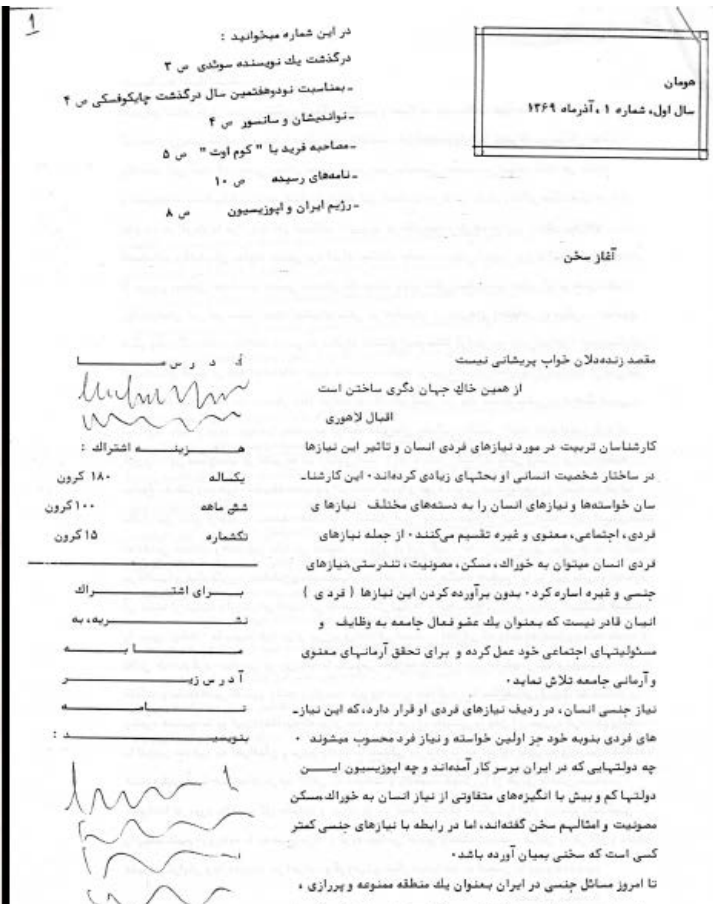 1
در این شماره میخوانید :
درگذشت یك نویسنده سوئدی ص ۳
ـ بمناسبت نودوهفتمین سال درگذشت چایکوفسکی ص ۴
ـ نواندیشان و سانسور ص ۴
ـ مصاحبه فرید با " کوم اوت " ص ۵
ـ نامه‌های رسیده ص ۱۰
ـ رژیم ایران و اپوزیسیون ص ۸
هومان
سال اول، شماره ۱ ، آذرماه ۱۳۶۹
آغاز سخن
مقصد زنده‌دلان خواب پریشانی نیست
از همین خاك جهان دگری ساختن است
اقبال لاهوری
کارشناسان تربیت در مورد نیازهای فردی انسان و تاثیر این نیازها
در ساختار شخصیت انسانی او بحثهای زیادی کرده‌اند۰ این کارشنا ـ
سان خواسته‌ها و نیازهای انسان را به دسته‌های مختلف نیازها ی
فردی، اجتماعی، معنوی و غیره تقسیم می‌کنند۰ از جمله نیازهای
فردی انسان میتوان به خوراك، مسکن، مصونیت، تندرستی،نیازهای
جنسی و غیره اساره کرد۰ بدون برآورده کردن این نیازها ( فرد ی )
انسان قادر نیست که بعنوان یك عضو فعال جامعه به وظایف و
مسئولیتهای اجتماعی خود عمل کرده و برای تحقق آرمانهای معنوی
و آرمانی جامعه تلاش نماید۰
نیاز جنسی انسان، در ردیف نیازهای فردی او قرار دارد،که این نیاز ـ
های فردی بنوبه خود جز اولین خواسته و نیاز فرد محسوب میشوند ۰
چه دولتهایی که در ایران برسر کار آمده‌اند و چه اپوزیسیون ایــــن
دولتها کم و بیش با انگیزه‌های متفاوتی از نیاز انسان به خوراك،مسکن
مصونیت و امثالهم سخن گفته‌اند، اما در رابطه با نیازهای جنسی کمتر
کسی است که سخنی بمیان آورده باشد۰
تا امروز مسائل جنسی در ایران بعنوان یك منطقه ممنوعه و پررازی ،
آ د ر س مـــــــا
هـــــــزینـــــه اشتراك :
یکساله ۱۸۰ کرون
شش ماهه ۱۰۰کرون
تکشماره ۱۵کرون
بـــــرای اشتـــــــراك
نشـــــــــریه، به
مـــــــا بـــــه
آ د ر س زیـــــــر
نـــــــامـــــه
بنویسیـــــــد :